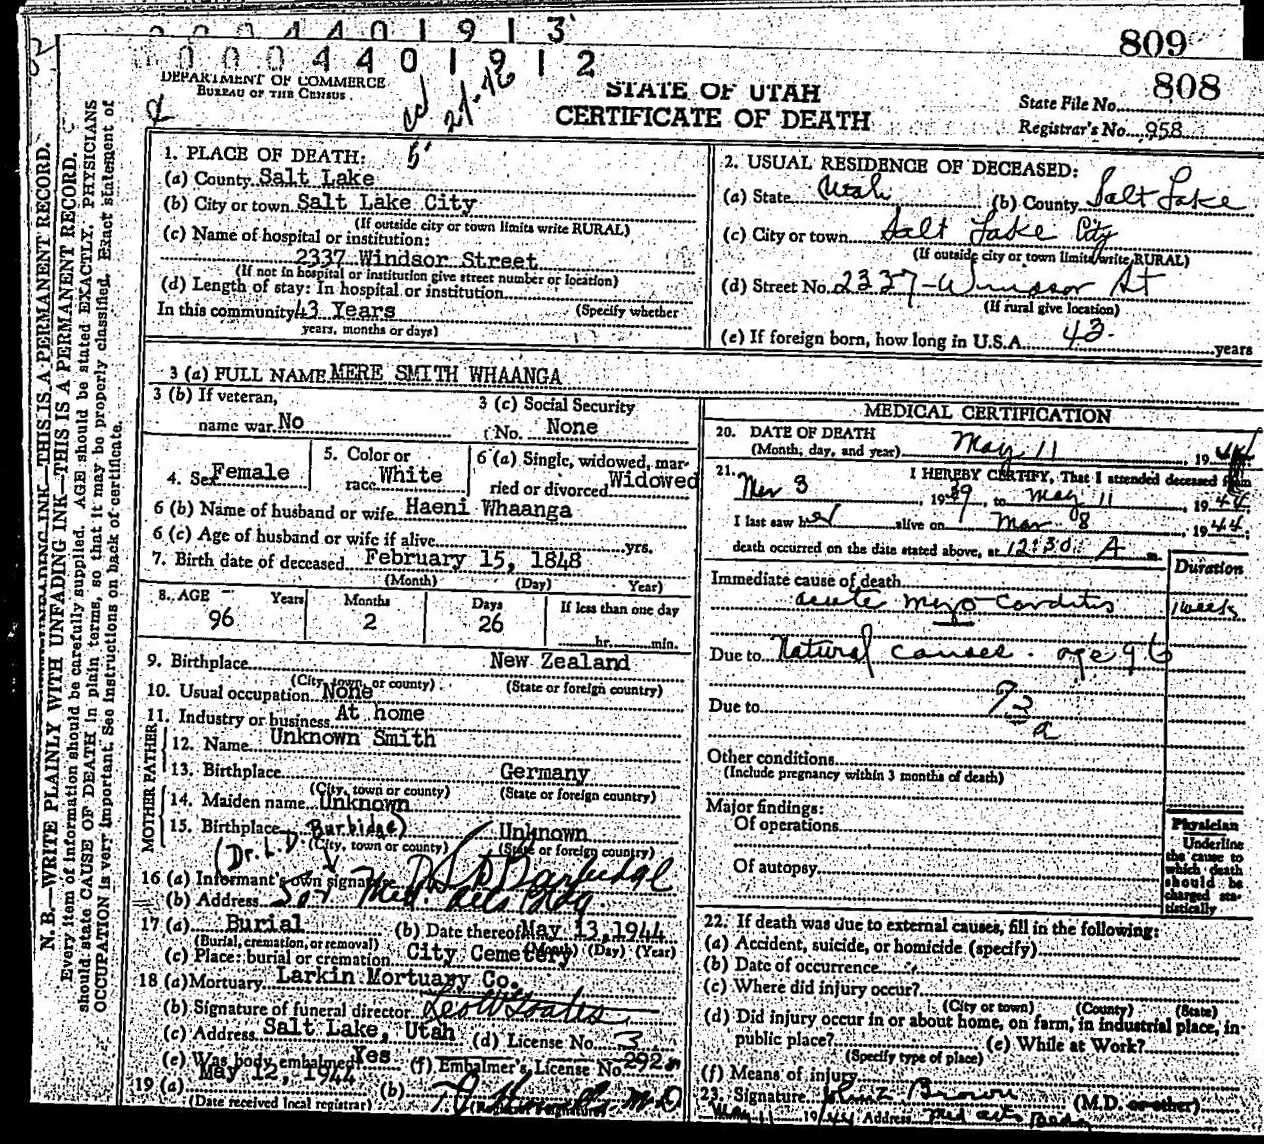 0 0 0 4 4 0 1 9 1 3
0 0 0 4 4 0 1 9 1 2
809
808
DEPARTMENT OF COMMERCE
BUREAU OF THE CENSUS
STATE OF UTAH
CERTIFICATE OF DEATH
State File No.
Registrar's No. 958
N. B.—WRITE PLAINLY WITH UNFADING INK—THIS IS A PERMANENT RECORD.
Every item of information should be carefully supplied. AGE should be stated EXACTLY. PHYSICIANS
should state CAUSE OF DEATH in plain terms, so that it may be properly classified. Exact statement of
OCCUPATION is very important. See instructions on back of certificate.
1. PLACE OF DEATH:
(a) County Salt Lake
(b) City or town Salt Lake City
(If outside city or town limits write RURAL)
(c) Name of hospital or institution:
2337 Windsor Street
(If not in hospital or institution give street number or location)
(d) Length of stay: In hospital or institution
In this community 43 Years (Specify whether
years, months or days)
2. USUAL RESIDENCE OF DECEASED:
(a) State Utah (b) County Salt Lake
(c) City or town Salt Lake City
(If outside city or town limits write RURAL)
(d) Street No. 2337-Windsor St
(If rural give location)
(e) If foreign born, how long in U.S.A. 43. years
3 (a) FULL NAME MERE SMITH WHAANGA
3 (b) If veteran,
name war No
3 (c) Social Security
No. None
4. Sex Female
5. Color or
race White
6 (a) Single, widowed, mar-
ried or divorced Widowed
6 (b) Name of husband or wife Haeni Whaanga
6 (c) Age of husband or wife if alive yrs.
7. Birth date of deceased February 15, 1848
(Month) (Day) Year)
8. AGE Years Months Days If less than one day
96 2 26 hr. min.
9. Birthplace New Zealand
(City, town, or county) (State or foreign country)
10. Usual occupation None
11. Industry or business At home
FATHER
12. Name Unknown Smith
13. Birthplace Germany
(City, town or county) (State or foreign country)
MOTHER
14. Maiden name Unknown
15. Birthplace Unknown
(City, town or county) (State or foreign country)
(Dr. L. D. Burbidge)
16 (a) Informant's own signature
(b) Address Med. Arts Bldg
17 (a) Burial (b) Date thereof May 13, 1944
(Burial, cremation, or removal) (Month) (Day) (Year)
(c) Place: burial or cremation City Cemetery
18 (a) Mortuary Larkin Mortuary Co.
(b) Signature of funeral director
(c) Address Salt Lake, Utah (d) License No. 3
(e) Was body embalmed Yes (f) Embalmer's License No. 292
19 (a) May 12, 1944 (b)
(Date received local registrar)
MEDICAL CERTIFICATION
20. DATE OF DEATH
(Month, day, and year) May 11 1944
21. I HEREBY CERTIFY, That I attended deceased from
3, 1939, to May 11, 1944
I last saw her alive on Mar. 8, 1944
death occurred on the date stated above, at 12:30 A m.
Duration
Immediate cause of death
acute myo-carditis 1 week
Due to Natural causes. age 96
Due to
93
a
Other conditions
(Include pregnancy within 3 months of death)
Major findings:
Of operations
Of autopsy
Physician
Underline
the cause to
which death
should be
charged sta-
tistically
22. If death was due to external causes, fill in the following:
(a) Accident, suicide, or homicide (specify)
(b) Date of occurrence
(c) Where did injury occur?
(City or town) (County) (State)
(d) Did injury occur in or about home, on farm, in industrial place, in
public place? (e) While at Work?
(Specify type of place)
(f) Means of injury
23. Signature John Z Brown (M.D. or other)
May 11 1944 Address Med arts